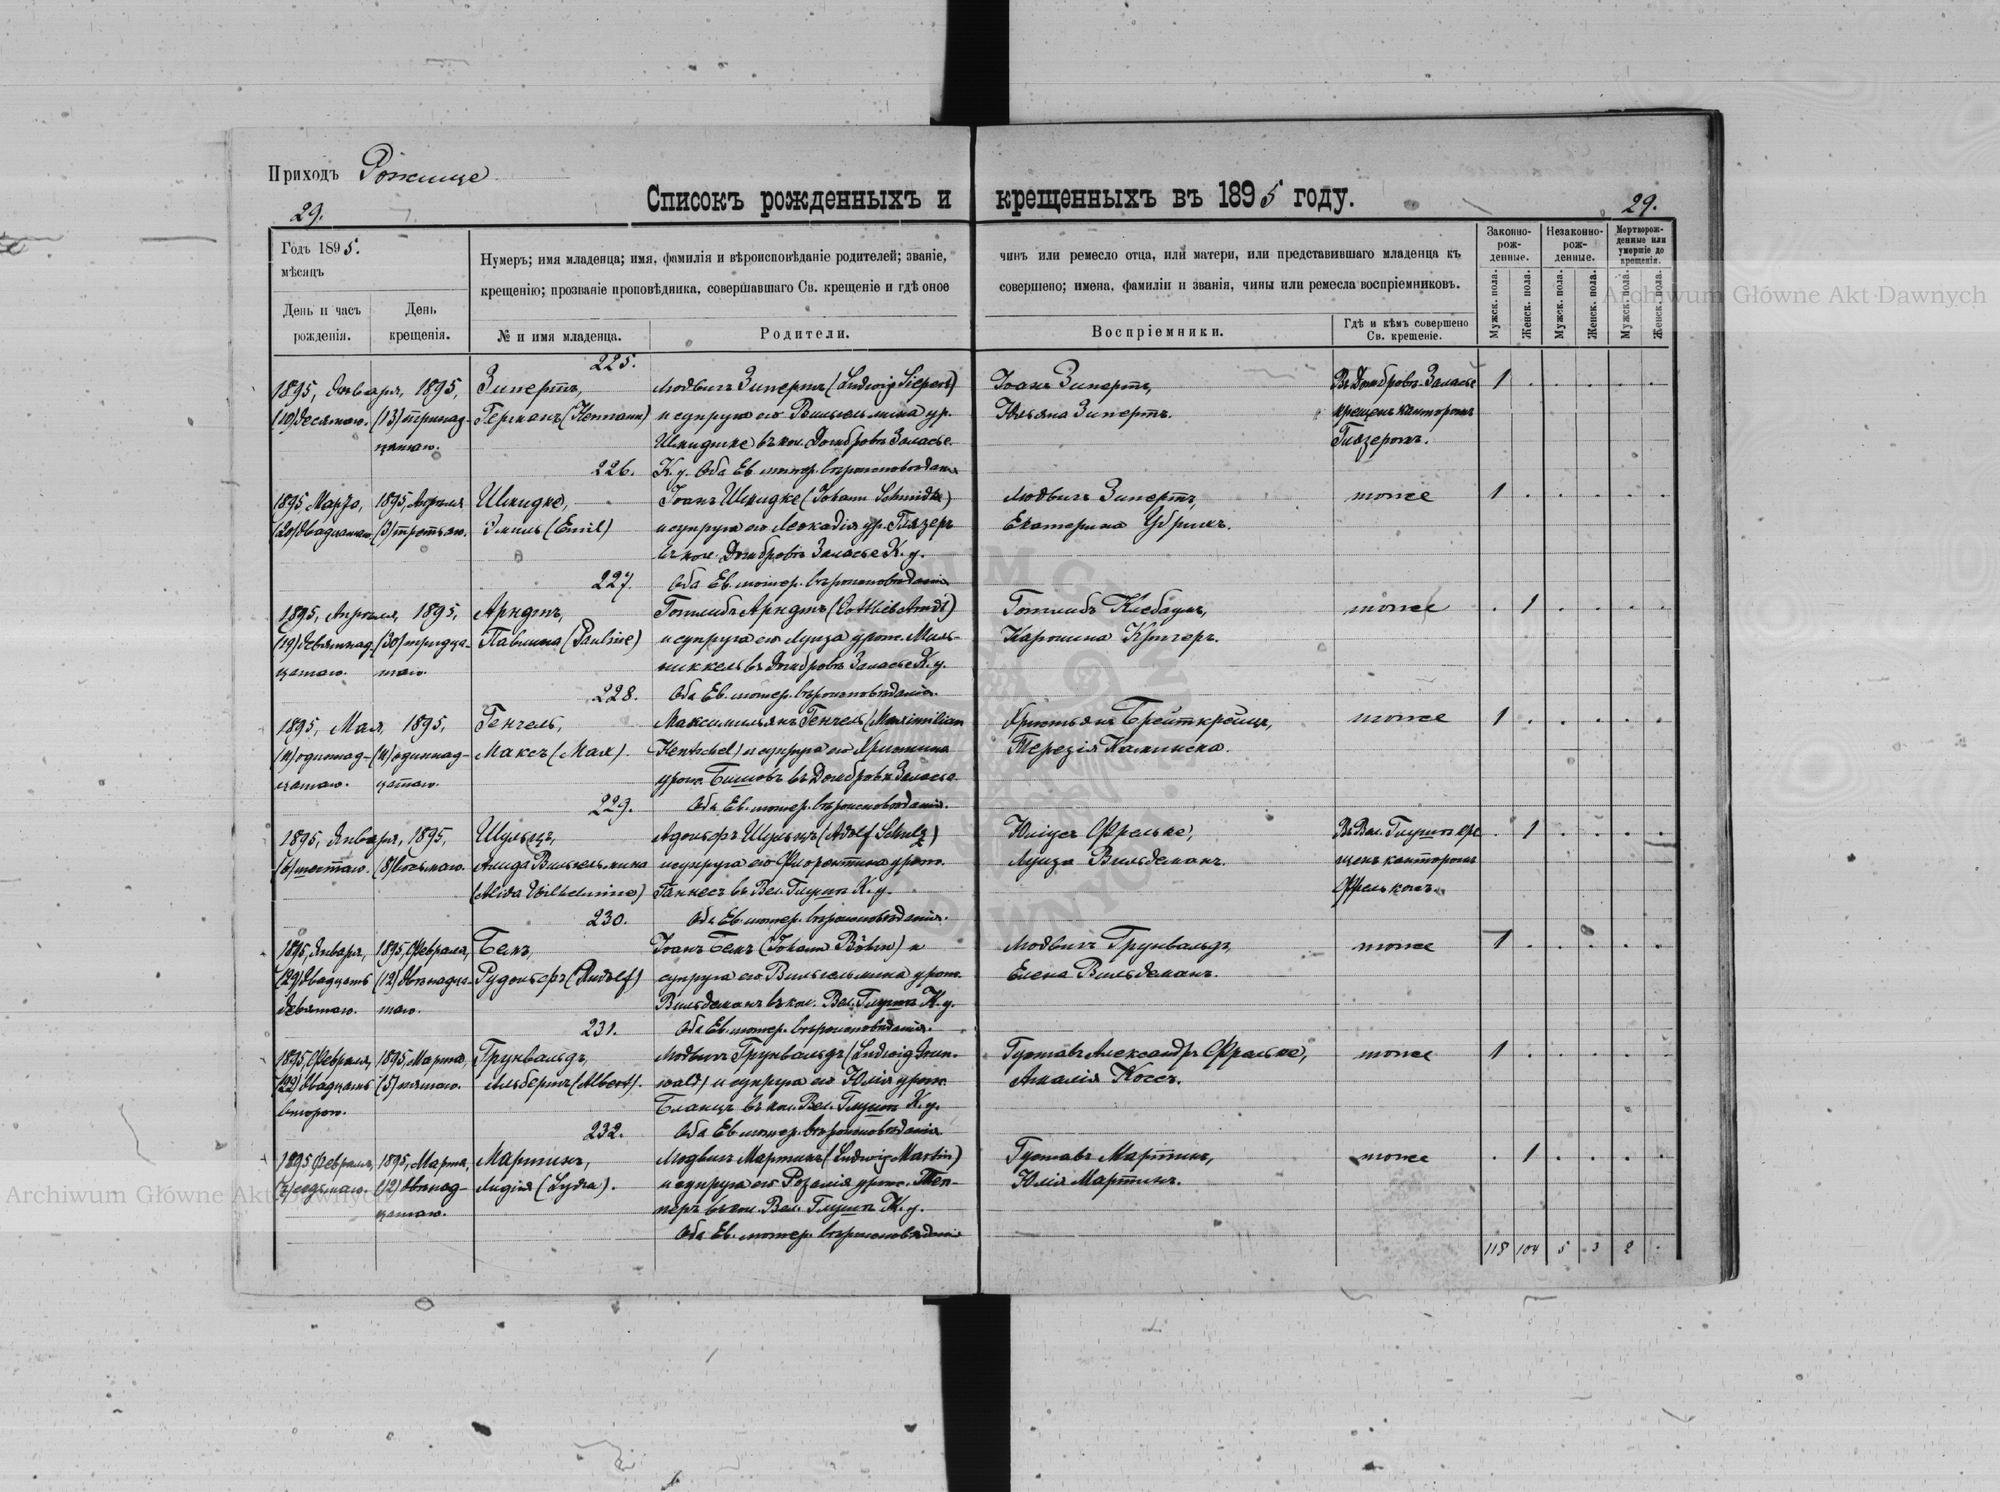 Приходъ Рожище
Списокъ рожденныхъ и крещенныхъ въ 1895 году.
29.
29.
Годъ 1895.
мѣсяцъ
День и часъ рожденія.
День крещенія.
Нумеръ; имя младенца; имя, фамилія и вѣроисповѣданіе родителей; званіе, чинъ или ремесло отца, или матери, или представившаго младенца къ
крещенію; прозваніе проповѣдника, совершавшаго Св. крещеніе и гдѣ оное совершено; имена, фамиліи и званія, чины или ремесла воспріемниковъ.
№ и имя младенца.
Родители.
Воспріемники.
Гдѣ и кѣмъ совершено Св. крещеніе.
Законно-рож-денные.
Незаконно-рож-денные.
Мертворож-денные или умершіе до крещенія.
Мужск. пола.
Женск. пола.
Мужск. пола.
Женск. пола.
Мужск. пола.
Женск. пола.
225.
1895, Января, 1895, Зипертъ, Людвигъ Зипертъ (Ludwig Siepert) Іоанъ Зипертъ, Въ Домбровѣ-Заласье 1
(10) десятаго. (13) тринад- Германъ (Hermann) и супруга его Вильгельмина ур. Юльяна Зипертъ. крещенъ канторомъ
цатаго. Шмидтке въ кол. Домбровѣ Заласье Глязеромъ.
226. К. у. Оба Ев. лютер. вѣроисповѣданія
1895, Марта, 1895, Апрѣля Шмидке, Іоанъ Шмидке (Johann Schmidke) Людвигъ Зипертъ, тоже 1
(20) двадцатаго (3) третьяго. Эмиль (Emil) и супруга его Леокадія ур. Глязеръ Екатерина Убрихъ.
въ кол. Домбровѣ Заласье К. у.
227. Оба Ев. лютер. вѣроисповѣданія
1895, Апрѣля, 1895, Арндтъ, Готлибъ Арндтъ (Gottlieb Arndt) Готлибъ Клебаумъ, тоже 1
(19) девятнад- (30) тридца- Павлина (Pauline) и супруга его Луиза урож. Миль- Каролина Кригеръ.
цатаго. таго. никкель въ Домбровѣ Заласье К. у.
228. Оба Ев. лютер. вѣроисповѣданія.
1895, Мая, 1895, Генчель, Максимильянъ Генчель (Maximilian Христьянъ Брейткрейцъ, тоже 1
(11) одиннад- (11) одиннад- Максъ (Max). Hentschel) и супруга его Христина Терезія Калинска.
цатаго. цатаго. урож. въ Домбровѣ Заласье.
229. Оба Ев. лютер. вѣроисповѣданія.
1895, Января, 1895, Шульцъ, Адольфъ Шульцъ (Adolf Schulz) Юліусъ Фрельке, Въ Вел. Глушѣ кре- 1
(6) шестаго. (8) восьмаго. Алида Вильгельмина и супруга его Флорентина урож. Луиза Вильдеманъ. щенъ канторомъ
(Alida Wilhelmine) въ Вел. Глушѣ К. у. Фрелькомъ.
230. Оба Ев. лютер. вѣроисповѣданія.
1895, Января, 1895, Февраля, Бемъ, Іоанъ Бемъ (Johann Böhm) и Людвигъ Грунвальдъ, тоже 1
(29) двадцать (12) двѣнадца- Рудольфъ (Rudolf) супруга его Вильгельмина урож. Елена Вильдеманъ.
девятаго. таго. Вильдеманъ въ кол. Вел. Глушѣ К. у.
231. Оба Ев. лютер. вѣроисповѣданія.
1895, Февраля, 1895, Марта, Грунвальдъ, Людвигъ Грунвальдъ (Ludwig Grun- Густавъ Александръ Фрельке, тоже 1
(22) двадцать (5) пятаго. Альбертъ (Albert). wald) и супруга его Юлія урож. Амалія Коссъ.
втораго. въ кол. Вел. Глушѣ К. у.
232. Оба Ев. лютер. вѣроисповѣданія
1895, Февраля, 1895, Марта, Мартинъ, Людвигъ Мартинъ (Ludwig Martin) Густавъ Мартинъ, тоже 1
(7) седьмаго. (12) двѣнад- Лидія (Lydia). и супруга его Розалія урож. Теп- Юлія Мартинъ.
цатаго. перъ въ кол. Вел. Глушѣ К. у.
Оба Ев. лютер. вѣроисповѣданія
118 104 5 3 2
Archiwum Główne Akt Dawnych
Archiwum Główne Akt Dawnych